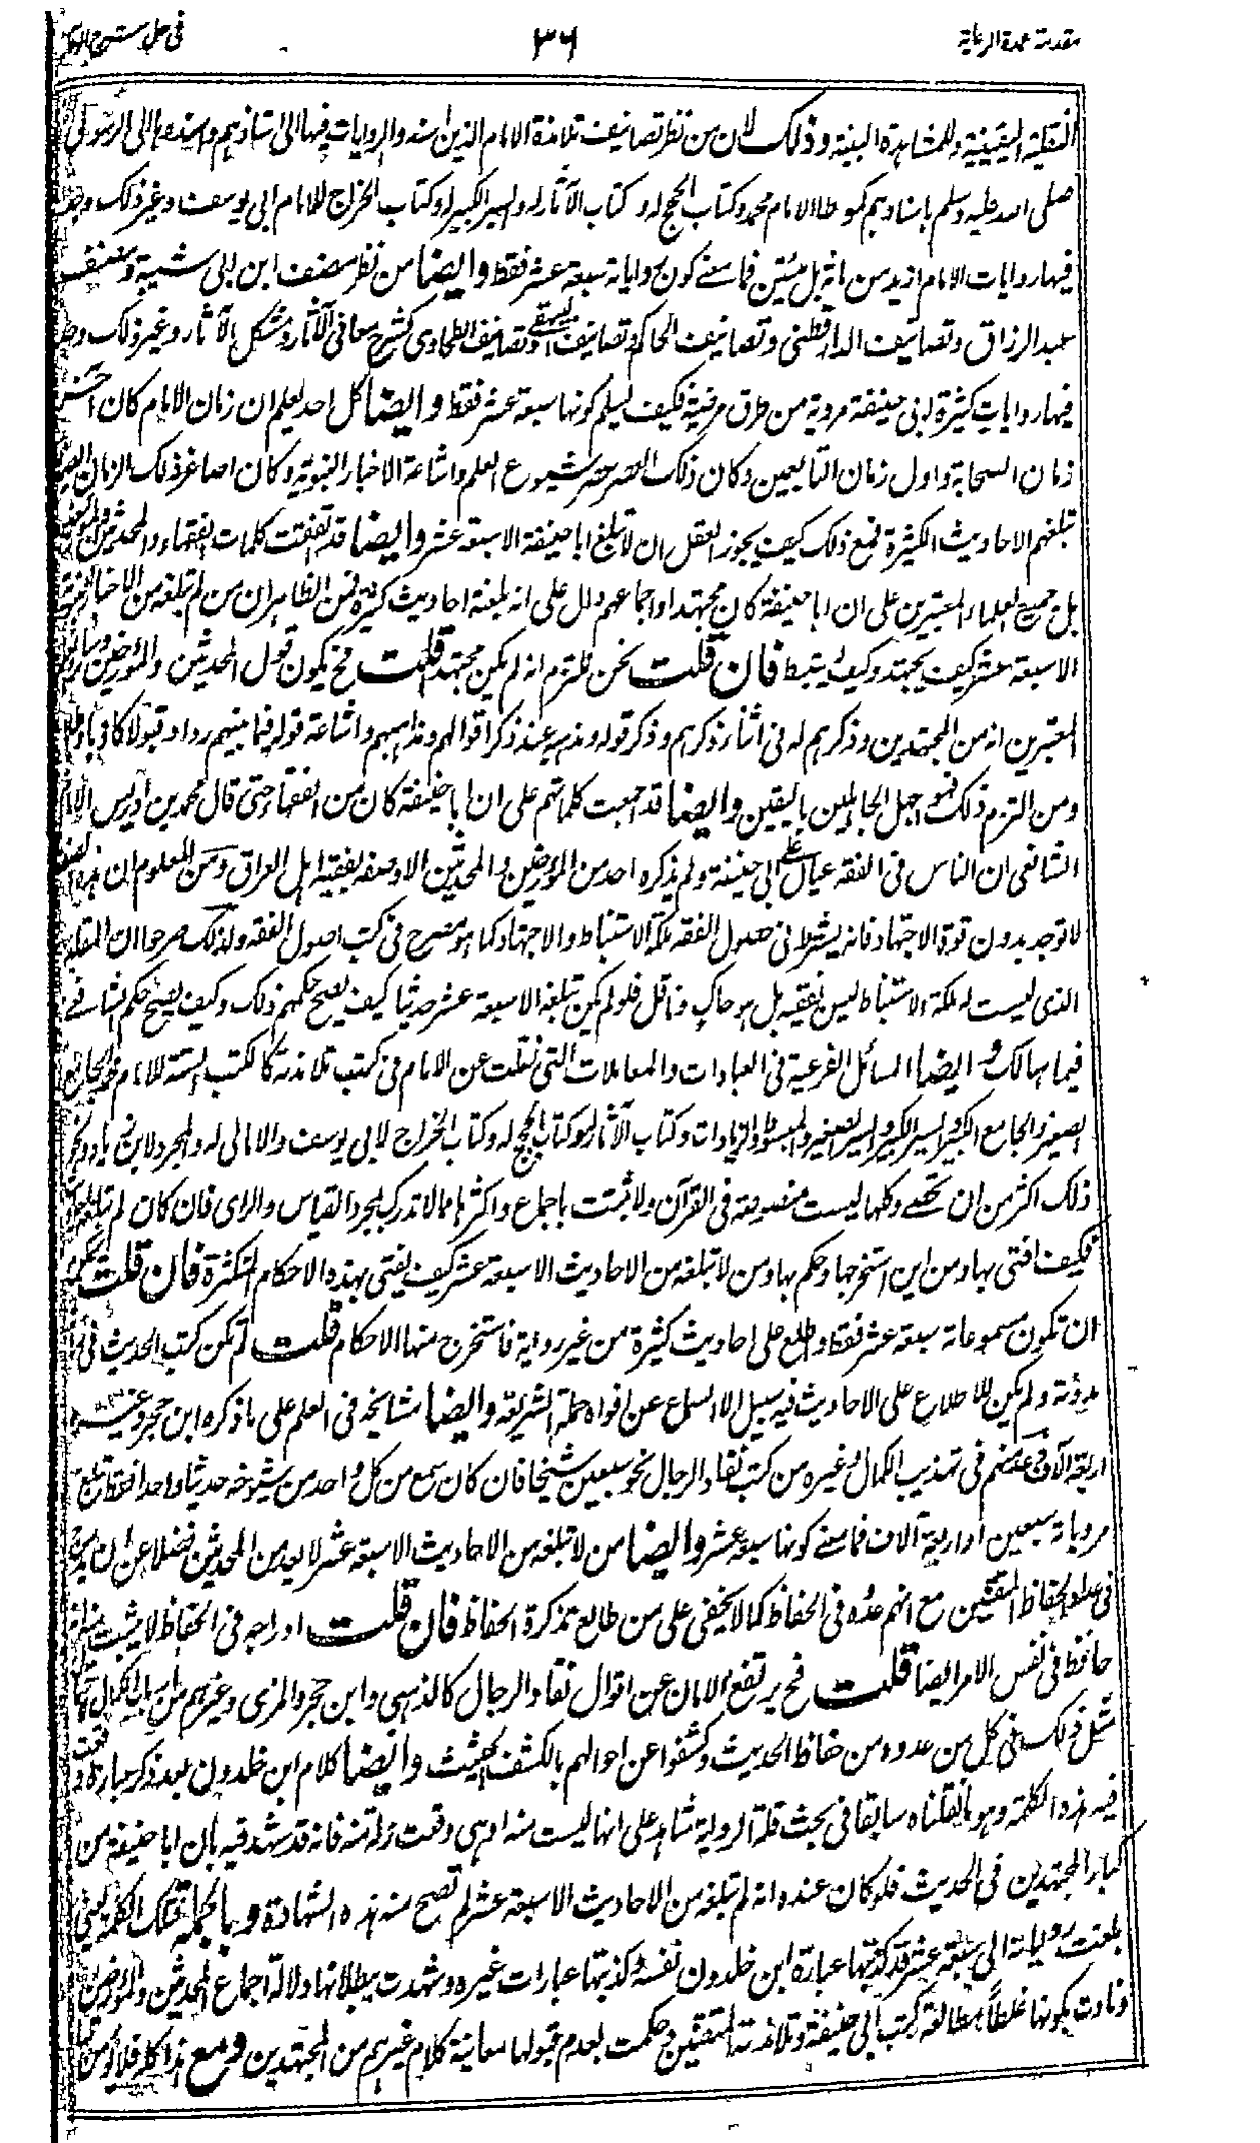 مقدمة عمدة الرعاية
٣٦
في حل شرح الوقاية
النقلية اليقينية وللمشاهدة البينة وذلك لان من نظر تصانيف تلامذة الامام الذين اسندوا الروايات فيها الى استاذهم واسنده الى الرسول
صلى الله عليه وسلم باسنادهم كموطا الامام محمد وكتاب الحجج له وكتاب الآثار له والسير الكبير له وكتاب الخراج للامام ابى يوسف وغير ذلك وجد
فيها روايات الامام ازيد من مائة بل مئتين فما معنى كون رواياته سبعة عشر فقط وايضا من نظر مصنف ابن ابى شيبة ومصنف
عبد الرزاق وتصانيف الدارقطنى وتصانيف الحاكم وتصانيف البيهقى وتصانيف الطحاوى كشرح معانى الآثار ومشكل الآثار وغير ذلك وجد
فيها روايات كثيرة لابى حنيفة مروية من طرق مرضية فكيف يسلم كونها سبعة عشر فقط وايضا كل احد يعلم ان زمان الامام كان آخر
زمان الصحابة واول زمان التابعين وكان ذلك العصر عصر شيوع العلم واشاعة الاخبار النبوية وكان اصاغر ذلك الزمان ايضا
تبلغهم الاحاديث الكثيرة فمع ذلك كيف يجوز العقل ان لا تبلغ ابا حنيفة الا سبعة عشر وايضا قد اتفقت كلمات الفقهاء والمحدثين
بل جميع العلماء المعتبرين على ان ابا حنيفة كان مجتهدا واجماعهم دل على انه بلغته احاديث كثيرة فمن الظاهر ان من لم تبلغه من الاخبار النبوية
الا سبعة عشر كيف يجتهد وكيف يستنبط فان قلت نحن نلتزم انه لم يكن مجتهدا قلت فح يكون قول المحدثين والمؤرخين وسائر
المعتبرين انه من المجتهدين وذكرهم له فى اثناء ذكرهم وذكر قوله ومذهبه عند ذكر اقوالهم ومذاهبهم واشاعة قوله فيما بينهم ردا وقبولا كاذبا وباطلا
ومن التزم ذلك فهو اجهل الجاهلين باليقين وايضا قد اجمعت كلماتهم على ان ابا حنيفة كان من الفقهاء حتى قال محمد بن ادريس الامام
الشافعى ان الناس فى الفقه عيال على ابى حنيفة ولم يذكره احد من المؤرخين والمحدثين الا وصفه بفقيه اهل العراق ومن المعلوم ان هذه الصفة
لا توجد بدون قوة الاجتهاد فانه يشترط فى حصول الفقه ملكة الاستنباط والاجتهاد كما هو مصرح فى كتب اصول الفقه ولذلك صرحوا ان المقلد
الذى ليست له ملكة الاستنباط ليس بفقيه بل هو حاك وناقل فلو لم يكن تبلغه الا سبعة عشر حديثا كيف يصح حكمهم ذلك وكيف يصح حكم الشافعى
فيما هنالك وايضا المسائل الفرعية فى العبادات والمعاملات التى نقلت عن الامام فى كتب تلامذته كالكتب الستة للامام محمد الجامع
الصغير والجامع الكبير والسير الكبير والسير الصغير والمبسوط والزيادات وكتاب الآثار له وكتاب الحجج له وكتاب الخراج لابى يوسف والامالى له والمجرد لابن زياد وغير
ذلك اكثر من ان تحصى وكلها ليست منصوصة فى القرآن ولا ثبتت باجماع واكثرها مما لا تدرك بمجرد القياس والراى فان كان لم تبلغه
فكيف افتى بها ومن اين استخرجها وحكم بها ومن لا تبلغه من الاحاديث الا سبعة عشر كيف يفتى بهذه الاحكام المتكثرة فان قلت يمكن
ان تكون مسموعاته سبعة عشر فقط واطلع على احاديث كثيرة من غير رواية فاستخرج منها الاحكام قلت لم تكن كتب الحديث فى
مدونة ولم يكن للاطلاع على الاحاديث فيه سبيل الا السماع عن افواه حملة الشريعة وايضا مشايخه فى العلم على ما ذكره ابن حجر وغيره
اربعة آلاف وعد منهم فى تهذيب الكمال وغيره من كتب نقاد الرجال نحو سبعين شيخا فان كان سمع من كل واحد من شيوخه حديثا واحدا فقط تبلغ
مروياته سبعين او اربعة آلاف فما معنى كونها سبعة عشر وايضا من لا تبلغه من الاحاديث الا سبعة عشر لا يعد من المحدثين فضلا عن ان يدرج
فى عداد الحفاظ المتقنين مع انهم عدوه فى الحفاظ كما لا يخفى على من طالع تذكرة الحفاظ فان قلت ادراجه فى الحفاظ لا يثبت
حافظ فى نفس الامر ايضا قلت فح يرتفع الامان عن اقوال نقاد الرجال كالذهبى وابن حجر والمزى وغيرهم من
مثل ذلك فى كل من عدوه من حفاظ الحديث وكشفوا عن احوالهم بالكشف الحثيث وايضا كلام ابن خلدون بعد ذكر عبارة وقعت
فيه هذه الكلمة وهو ما نقلناه سابقا فى بحث قلة الرواية شاهد على انها ليست منه او هى وقعت زلة منه فانه قد شهد فيه بان ابا حنيفة من
كبار المجتهدين فى الحديث فلو كان عنده انه لم تبلغه من الاحاديث الا سبعة عشر لم تصح منه هذه الشهادة وبالجملة فتلك الكلمة يعنى
بلغت رواياته الى سبعة عشر قد كذبتها عبارة ابن خلدون نفسه وكذبتها عبارات غيره وشهدت ببطلانها دلالة اجماع المحدثين والمؤرخين
ونادت بكونها غلطا مطالعة كتب ابى حنيفة وتلامذته المتقنين وحكمت بعدم قبولها معاينة كلام غيرهم من المجتهدين ومع هذا كله فلا